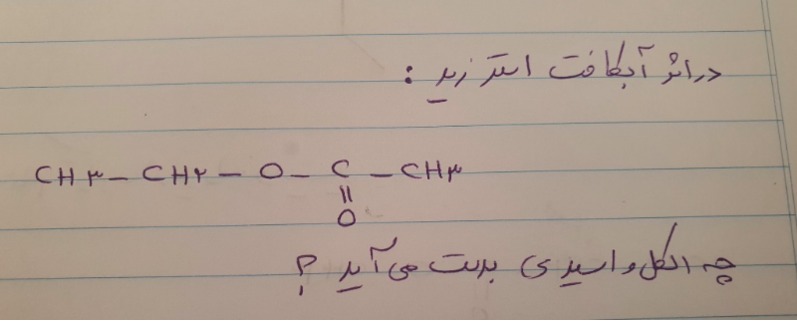 در اثر آبکافت استر زیر :
CH۳ – CH۲ – O – C – CH۳
||
O
چه الکل و اسیدی بدست می آید ؟